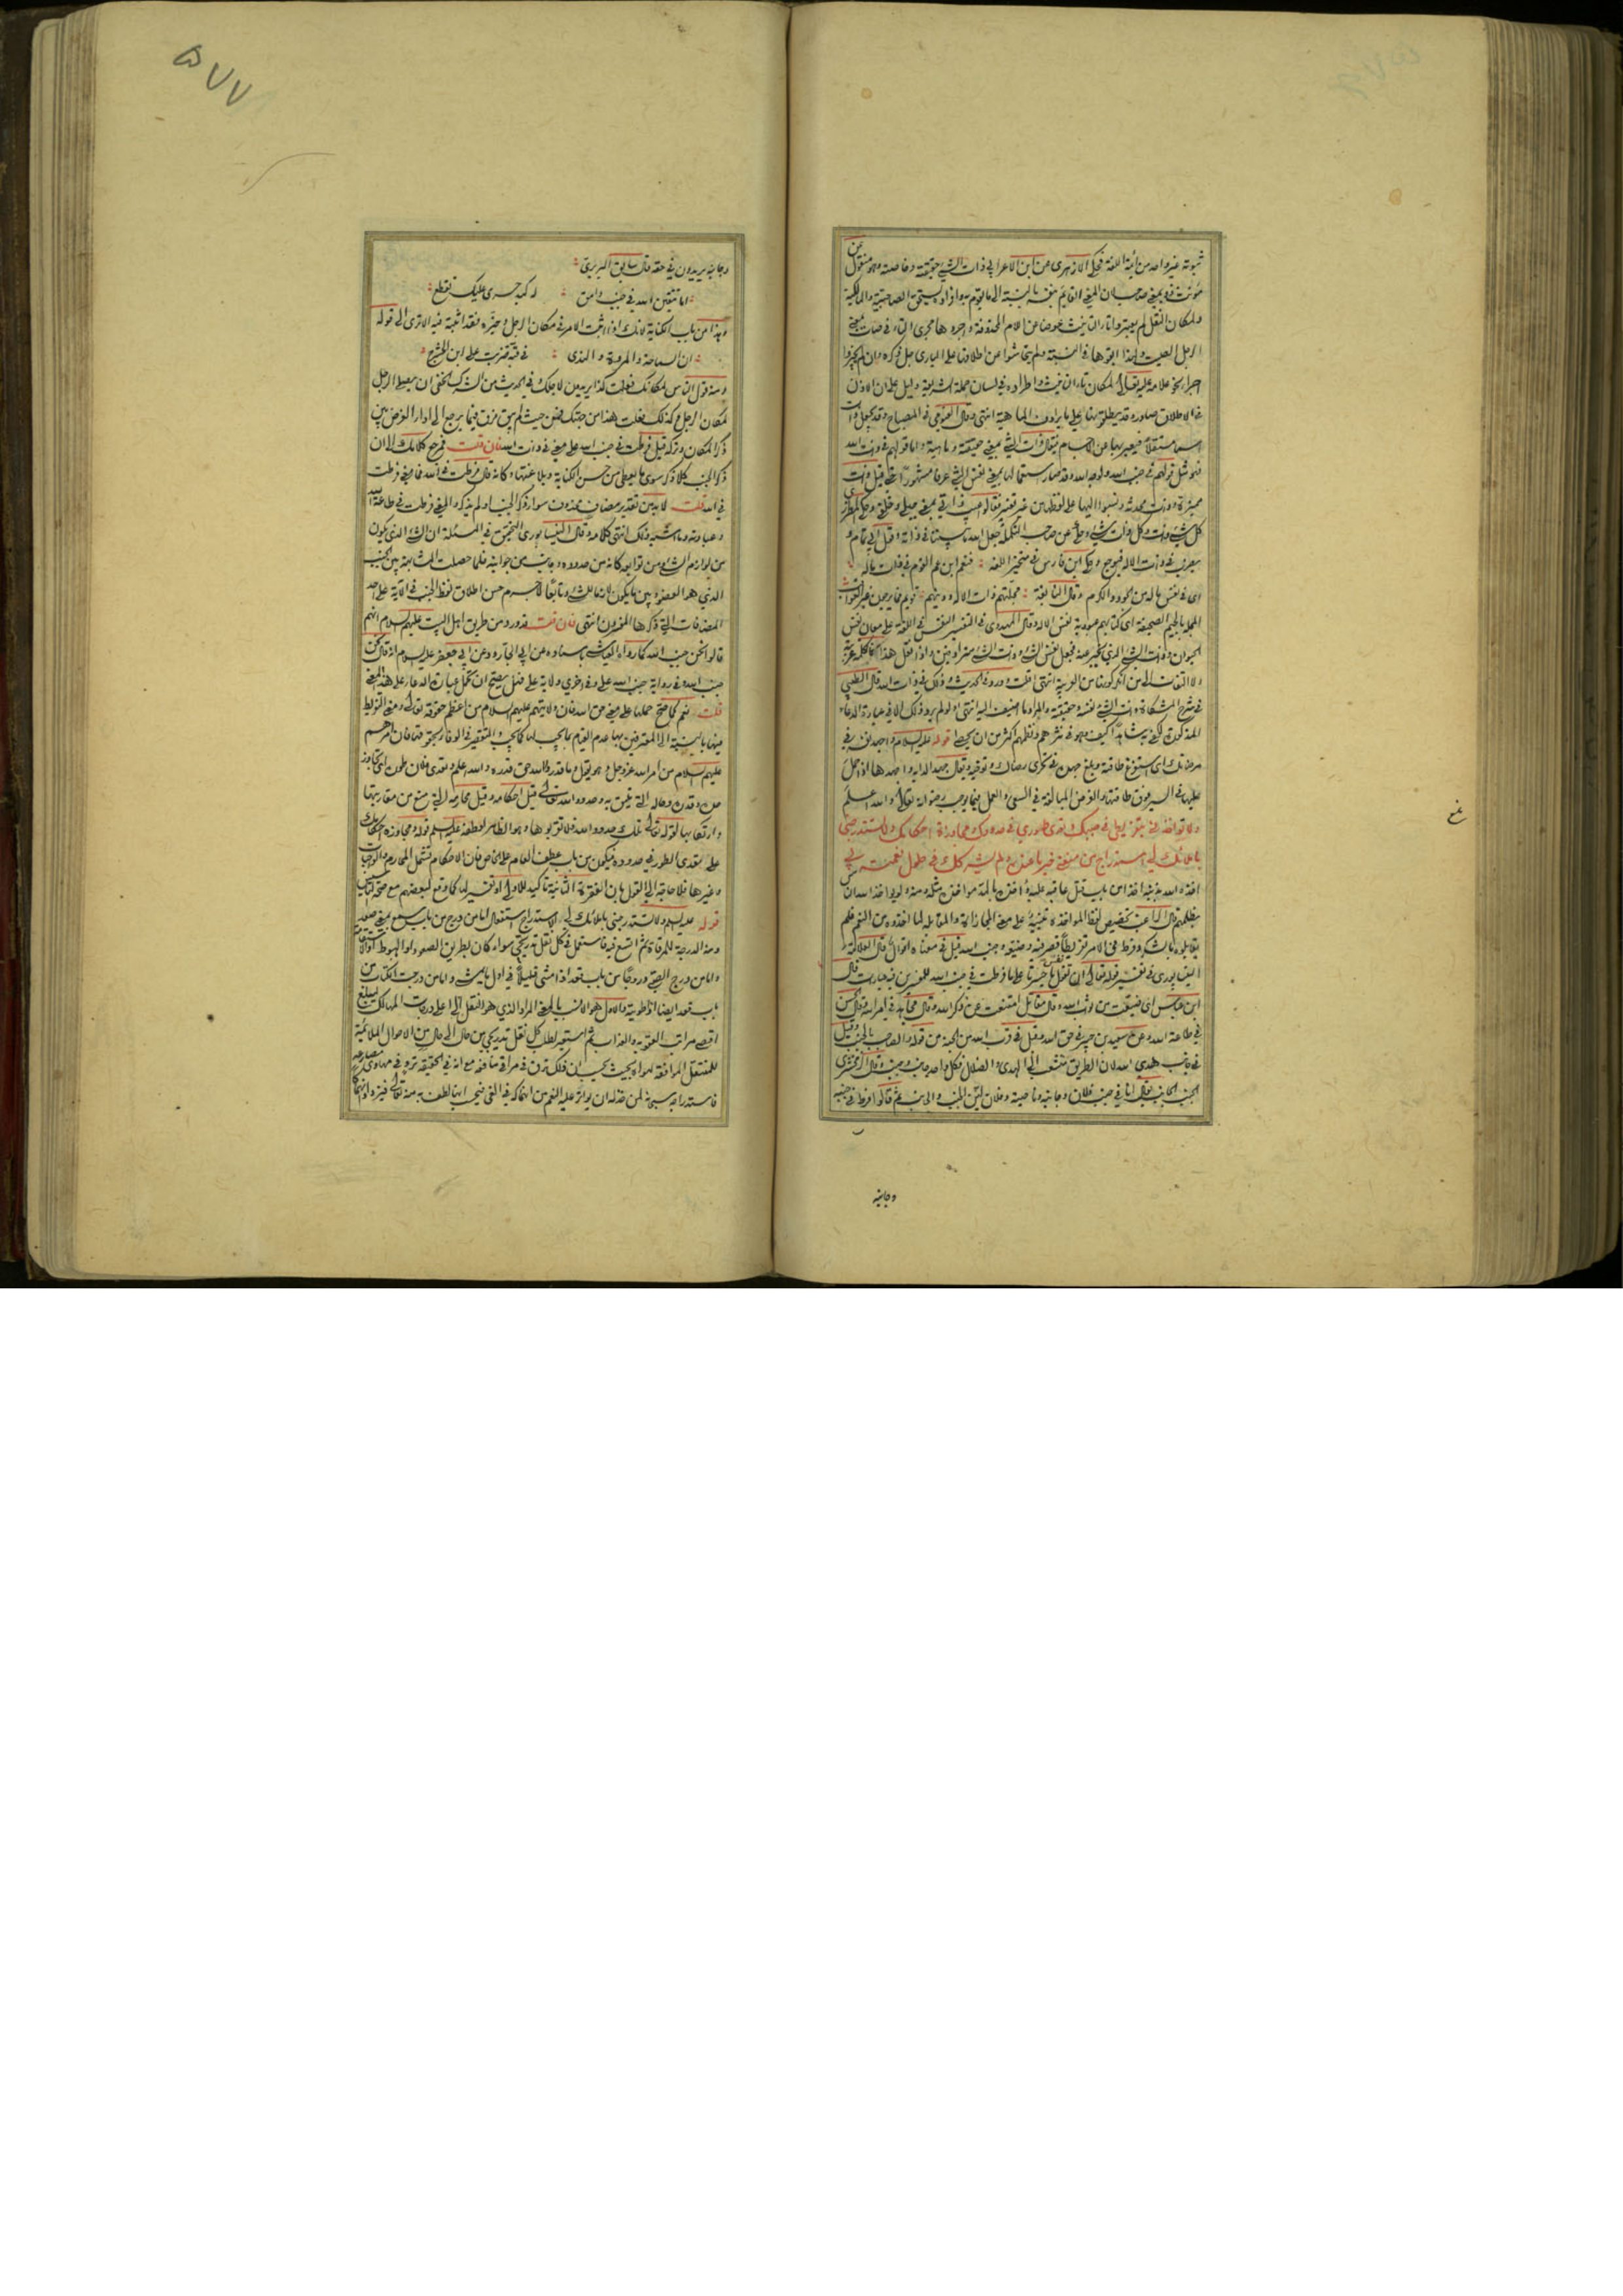 ثبوته غير واحد من أئمة اللغة فحكى الازهرى عن ابن الاعرابى ذات الشئ حقيقته وخاصته وهو منقول عن
مؤنث ذو بمعنى صاحب لان المعنى القائم بنفسه بالنسبة الى ما يقوم به وافراده يستحق الصاحبية والمالكية
ولمكان النقل لم يعتبروا ان التانيث عوضا عن اللام المحذوفة واجروها مجرى التاء فى صات بمعنى
الرجل الصيت ولهذا ابقوها فى النسبة ولم يتحاشوا عن اطلاقها على البارى جل ذكره وان لم يجيزوا
اجراء نحو علامة عليه تعالى لمكان تاء التانيث واطراده فى لسان حملة الشريعة دليل على ان الاذن
فى الاطلاق صادر وقد يطلقونها على ما يرادف الماهية انتهى وقال الفيومى فى المصباح وقد تجعل ذات
اسما مستقلا فيعبر بها عن الاجسام فيقال ذات الشئ بمعنى حقيقته وماهيته واما قولهم فى ذات الله
فهو مثل قولهم فى جنب الله ولوجه الله وقد صار استعمالها بمعنى نفس الشئ عرفا مشهورا حتى قيل ذات
مميزة وذات محدثة ونسبوا اليها على لفظها من غير تغيير فقالوا عيب ذاتى بمعنى جبلى وخلقى وحكى المطرزى
كل شئ ذات وكل ذات شئ وحكى عن صاحب التكملة جعل الله ما بيننا فى ذاته وقول ابى تمام
يضرب فى ذات الاله فيوجع وحكى ابن فارس فى متخير اللغة فنعم ابن عم القوم فى ذات ماله
اى فى نفس ماله من الجود والكرم وقال النابغة مجلتهم ذات الاله ودينهم قويم فما يرجون غير العواقب
المجلة بالجيم الصحيفة اى كتابهم عبودية نفس الاله وقال المهدوى فى التفسير النفس فى اللغة على معان نفس
الحيوان وذات الشئ الذى يخبر عنه فجعل نفس الشئ وذات الشئ مترادفين واذا نقل هذا فالكلمة عربية
ولا التفات الى من انكر كونها من العربية انتهى قلت وورد فى الحديث وذلك فى ذات الله قال الطيبى
فى شرح المشكاة ذات الشئ نفسه وحقيقته والمراد ما اضيف اليه انتهى ولو لم يرد ذلك الا فى عبارة الدعاء
المذكور لكفى به شاهدا كيف وهو فى نثرهم ونظمهم اكثر من ان يحصى قوله عليه السلام واجهد نفسه فى
مرضاتك اى استفرغ طاقته وبلغ جهده فى تحرى رضاك وتوخيه ويقال جهد الدابة واجهدها اذا حمل
عليها فى السير فوق طاقتها والغرض المبالغة فى السعى والعمل فيما يوجب رضوانه تعالى والله اعلم
ولا تؤاخذنى بتفريطى فى جنبك وتعدى طورى فى حدودك ومجاوزة احكامك ولا تستدرجنى
باملائك لى استدراج من منعنى خير ما عنده ولم يشركك فى حلول نعمته بى
اخذه الله بذنبه اخذا من باب قتل عاقبه عليه وآخذه بالمد مؤاخذة مثله ومنه ولو يؤاخذ الله الناس
بظلمهم قال الراغب تخصيص لفظ المؤاخذة تنبيه على معنى المجازاة والمقابلة لما اخذوه من النعم فلم
يقابلوه بالشكر وفرط فى الامر تفريطا قصر فيه وضيعه وجنب الله قيل فى معناه اقوال قال العلامة
النيسابورى فى تفسير قوله تعالى ان تقول نفس يا حسرتا على ما فرطت فى جنب الله للمفسرين فيه عبارات قال
ابن عباس اى ضيعت من ثواب الله وقال مقاتل امتنعت عن ذكر الله وقال مجاهد فى امر الله وقال الحسن
فى طاعة الله وعن سعيد بن جبير فى حق الله وقيل فى قرب الله من الجنة من قوله والصاحب بالجنب وقيل
فى جانب هدى الله لان الطريق متشعب الى الهدى والضلال فكل واحد جانب وجنب وقال الزمخشرى
الجنب الجانب يقال انا فى جنب فلان وجانبه وناحيته وفلان لين الجنب والجانب ثم قالوا فرط فى جنبه
وجانبه
وجانبه يريدون فى حقه قال سابق البربرى
اما تتقين الله فى جنب وامق له كبد حرى عليك تقطع
وهذا من باب الكناية لانك اذا اثبت الامر فى مكان الرجل وحيزه فقد اثبته فيه الا ترى الى قوله
ان السماحة والمروة والندى فى قبة ضربت على ابن الحشرج
ومنه قول الناس لمكانك فعلت كذا يريدون لاجلك وفى الحديث من الشرك الخفى ان يصلى الرجل
لمكان الرجل وكذلك فعلت هذا من جهتك فمن حيث لم يبق فرق فيما يرجع الى اداء الغرض بين
ذكر المكان وتركه قيل فرطت فى جنب الله على معنى فى ذات الله فان قلت فمرجع كلامك الى ان
ذكر الجنب كلا ذكر سوى ما يعطى من حسن الكناية وبلاغتها وكانه قال فرطت فى الله فما معنى فرطت
فى الله قلت لا بد من تقدير مضاف محذوف سواء ذكر الجنب او لم يذكر والمعنى فرطت فى طاعة الله
وعبادته وما اشبه ذلك انتهى كلامه وقال النيسابورى التحقيق فى المسئلة ان الشئ الذى يكون
من لوازم الشئ ومن توابعه كانه من حدوده وجانب من جوانبه فلما حصلت المشابهة بين الجنب
الذى هو العضو وبين ما يكون لازما للشئ وتابعا له لا جرم حسن اطلاق لفظ الجنب فى الآية على احد
المضافات التى ذكرها المفسرون انتهى فان قلت قد ورد من طريق اهل البيت عليهم السلام انهم
قالوا نحن جنب الله كما رواه العياشى باسناده عن ابى الجارود عن ابى جعفر عليه السلام انه قال نحن
جنب الله وفى رواية جنب الله على وفى اخرى ولاية على فهل يصح ان تحمل عبارة الدعاء على هذا المعنى
قلت نعم كما صح حملها على معنى حق الله فان ولايتهم عليهم السلام من اعظم حقوقه تعالى ومعنى التفريط
فيها بالنسبة الى المعترفين بها عدم القيام بما يجب لها كما يجب والتقصير فى الوفاء بحقوقها فان امرهم
عليهم السلام من امر الله عز وجل وهو يقول وما قدروا الله حق قدره والله اعلم وتعدى فلان طوره اى تجاوز
حده وقدره وحاله التى تليق به وحدود الله تعالى قيل احكامه وقيل محارمه التى منع من مقاربتها
وارتكابها لقوله تعالى تلك حدود الله فلا تقربوها وهو الظاهر لعطفه عليه السلام قوله ومجاوزة احكامك
على تعدى الطور فى حدوده فيكون من باب عطف العام على الخاص فان الاحكام تشمل المحارم والواجبات
وغيرها فلا حاجة الى القول بان الفقرة الثانية تاكيد للاولى او تفسير لها كما وقع لبعضهم مع صحة التاسيس
قوله عليه السلام ولا تستدرجنى باملائك لى الاستدراج استفعال اما من درج من باب سمع بمعنى صعد
ومنه الدرجة للمرقاة ثم اتسع فيه فاستعمل فى كل نقل تدريجى سواء كان بطريق الصعود او الهبوط او الاستقامة
واما من درج الصبى دروجا من باب قعد اذا مشى قليلا فى اول ما يمشى واما من درجت الكتاب من
باب قعد ايضا اذا طويته والاول هو الانسب بالمعنى المراد الذى هو النقل الى اعلى درجات المهالك ليبلغ
اقصى مراتب العقوبة والعذاب ثم استعير لطلب كل نقل تدريجى من حال الى حال من الاحوال الملائمة
للمنتقل الموافقة لهواه بحيث يحسب ان ذلك ترق فى مراقى منافعه مع انه فى الحقيقة ترد فى مهاوى مصارعه
فاستدراجه سبحانه لمن خذله ان يواتر عليه النعم مع انهماكه فى الغى فيحسب انها لطف به منه تعالى فيزداد انهماكا
٥٧٧